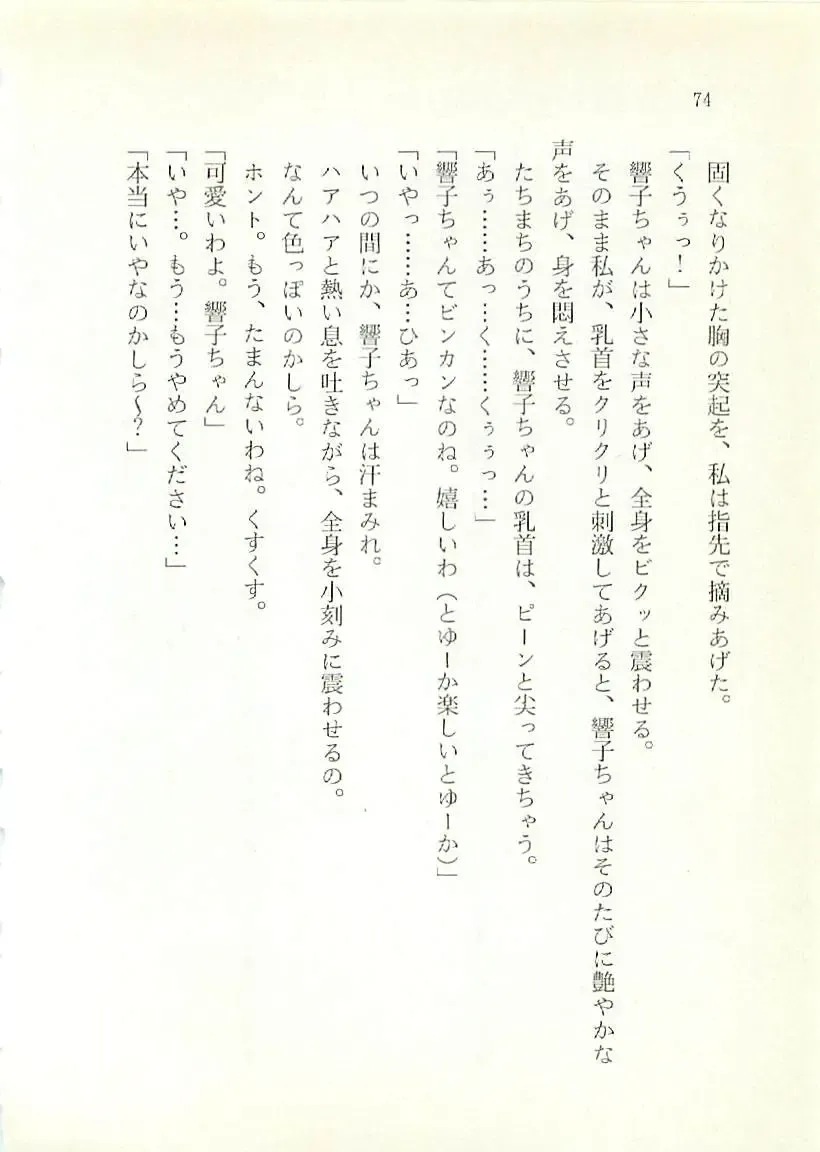 74
固くなりかけた胸の突起を、私は指先で摘みあげた。
「くうぅっ！」
響子ちゃんは小さな声をあげ、全身をビクッと震わせる。
そのまま私が、乳首をクリクリと刺激してあげると、響子ちゃんはそのたびに艶やかな
声をあげ、身を悶えさせる。
たちまちのうちに、響子ちゃんの乳首は、ピーンと尖ってきちゃう。
「あぅ……あっ…く……くぅぅっ…」
「響子ちゃんてビンカンなのね。嬉しいわ（とゆーか楽しいとゆーか）」
「いやっ……あ…ひあっ」
いつの間にか、響子ちゃんは汗まみれ。
ハアハアと熱い息を吐きながら、全身を小刻みに震わせるの。
なんて色っぽいのかしら。
ホント。もう、たまんないわね。くすくす。
「可愛いわよ。響子ちゃん」
「いや…。もう…もうやめてください…」
「本当にいやなのかしら〜？」